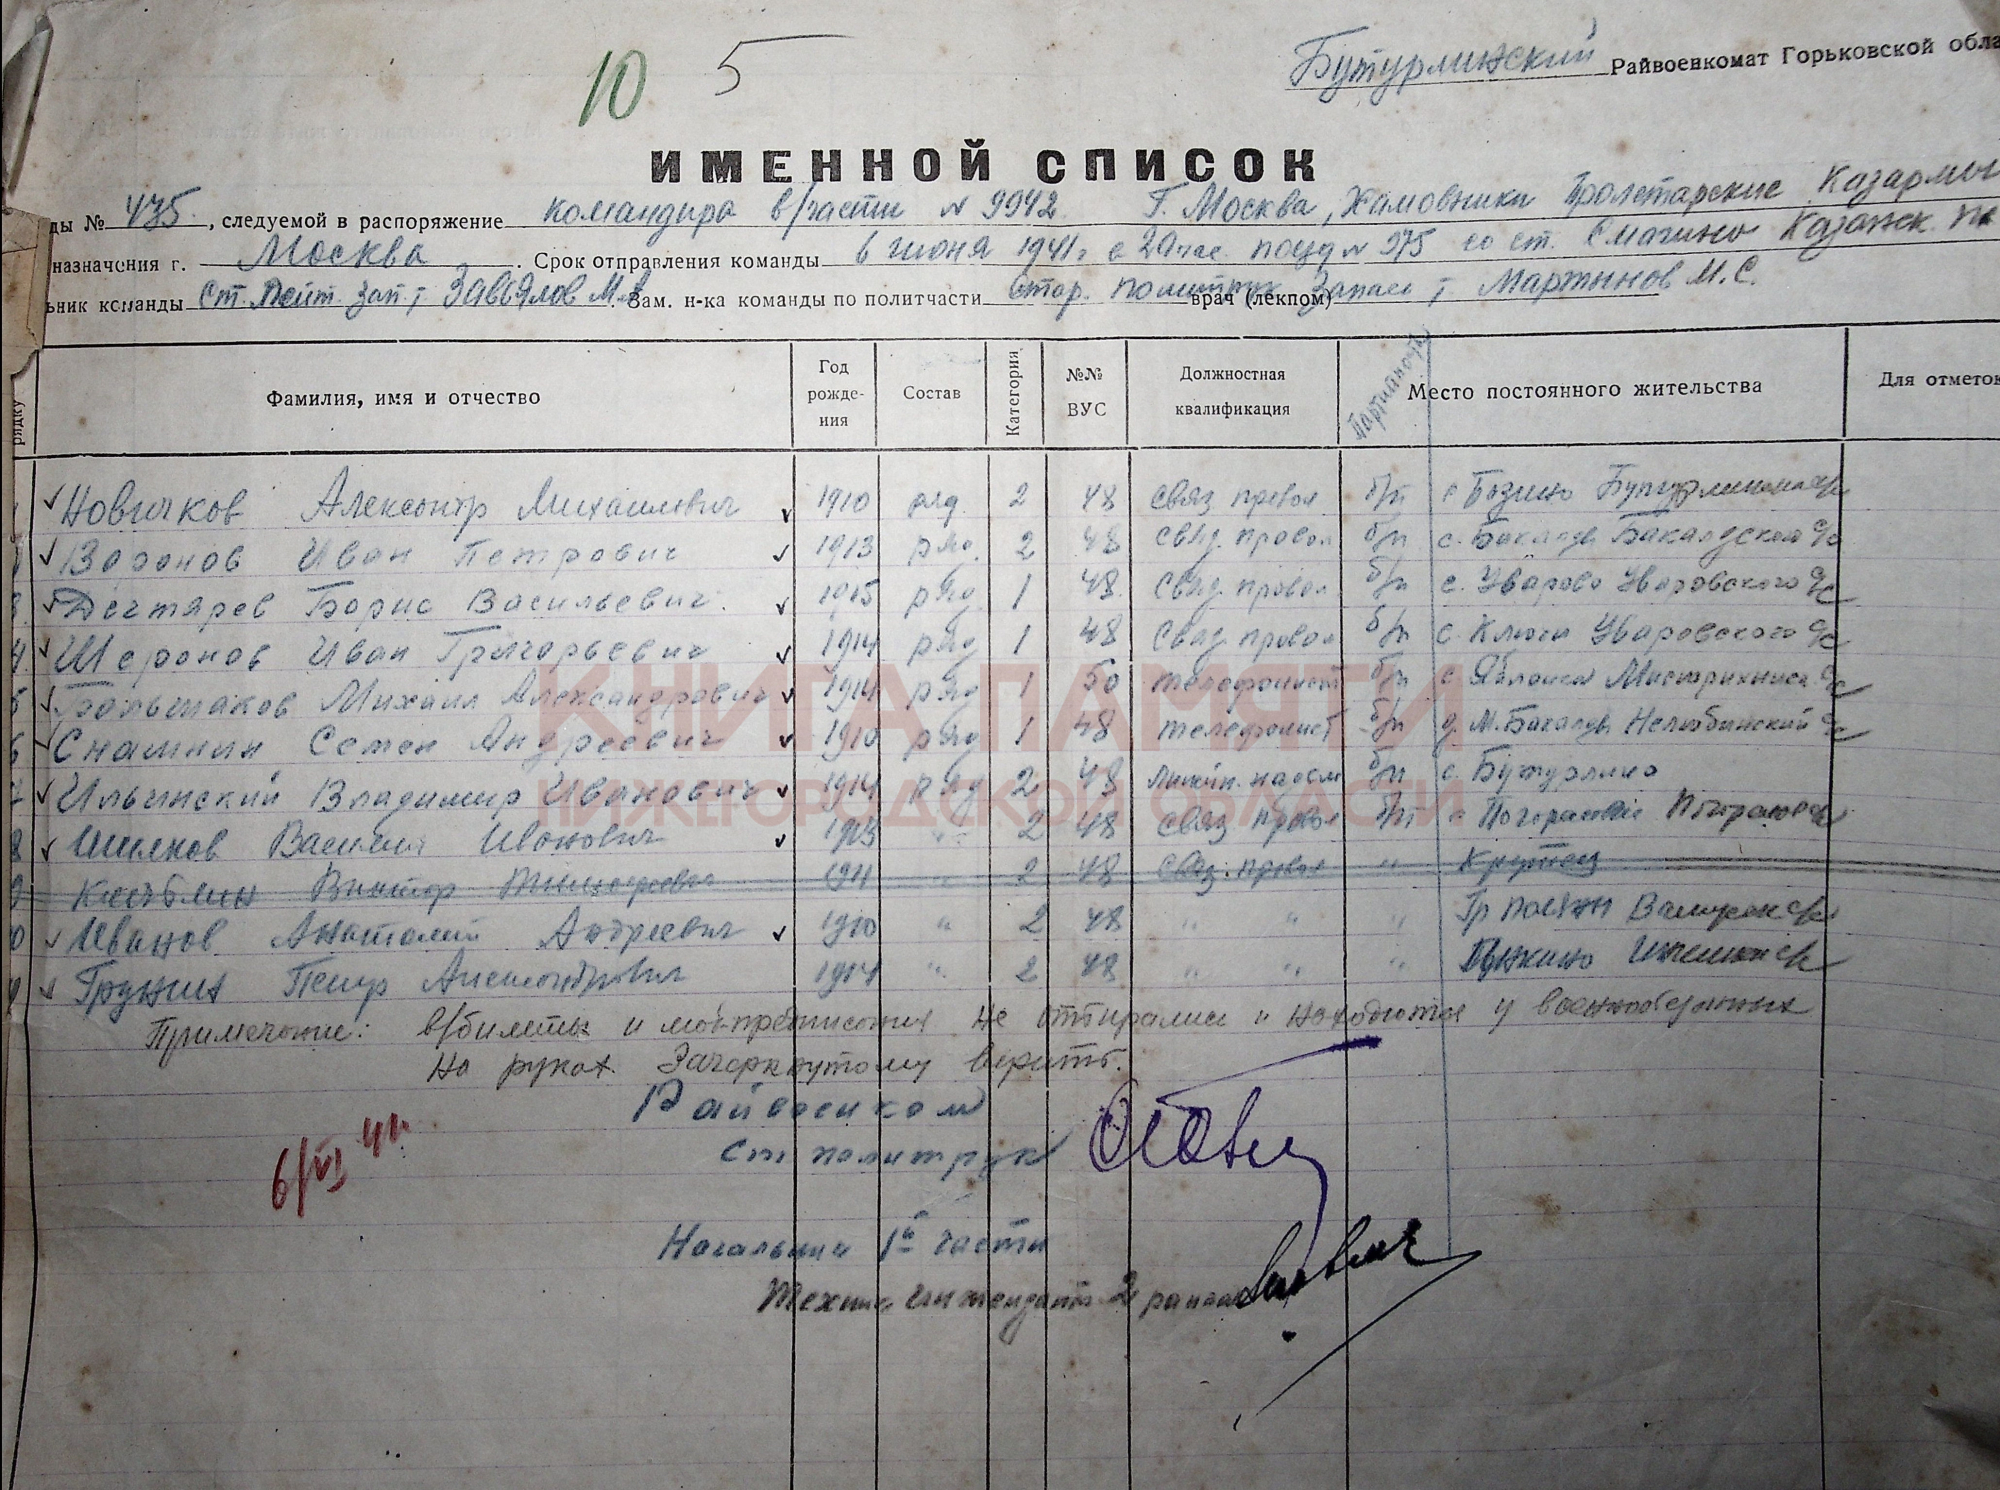 10 5
Бутурлинский Райвоенкомат Горьковской обла
ИМЕННОЙ СПИСОК
ды № 475, следуемой в распоряжение командира в/части № 9942 Г. Москва, Хамовники Пролетарские Казармы
назначения г. Москва. Срок отправления команды 6 июня 1941г с 20 час. поезд № 975 со ст. Смагино Казанск.
ьник команды Ст. Лейт. зап. т Завьялов М. Зам. н-ка команды по политчасти Стар. политрук запаса т. Мартынов М.С. врач (лекпом)
рядку Фамилия, имя и отчество Год рождения Состав Категория №№ ВУС Должностная квалификация Партийность Место постоянного жительства Для отметок
Новичков Александр Михайлович 1910 ряд. 2 48 связ провол б/п с
Воронов Иван Петрович 1913 ряд. 2 48 связ. провол б/п с. Бакалды Бакалдского с/с
3 Дегтярев Борис Васильевич. 1915 ряд 1 48 связ. провол б/п с. Уварово Уваровского с/с
4 Шеронов Иван Григорьевич 1914 ряд 1 48 связ провол б/п с. Ключи Уваровского с/с
5 Большаков Михаил Александрович 1914 ряд 1 50 телефонист б/п с.
6 Семен Андреевич 1910 ряд 1 48 телефонист б/п д. М. Бакалды
7 Ильинский Владимир Иванович 1914 ряд 2 48 б/п с. Бутурлино
8 Шилков Василий Иванович 1913 " 2 48 связ провол б/п с
9 Виктор 1911 " 2 48 связ. провол " Крутец
10 Иванов Анатолий Андреевич 1910 " 2 48 " " "
Грунин Петр Александрович 1914 " 2 48 " " "
Примечание: в/билеты и моб.предписания не отбирались и находятся у военнообязанных
на руках. Зачеркнутому верить.
Райвоенком
ст политрук
6/VI 41.
Начальник 1й части
Техник интендант 2 ранга
КНИГА ПАМЯТИ
НИЖЕГОРОДСКОЙ ОБЛАСТИ